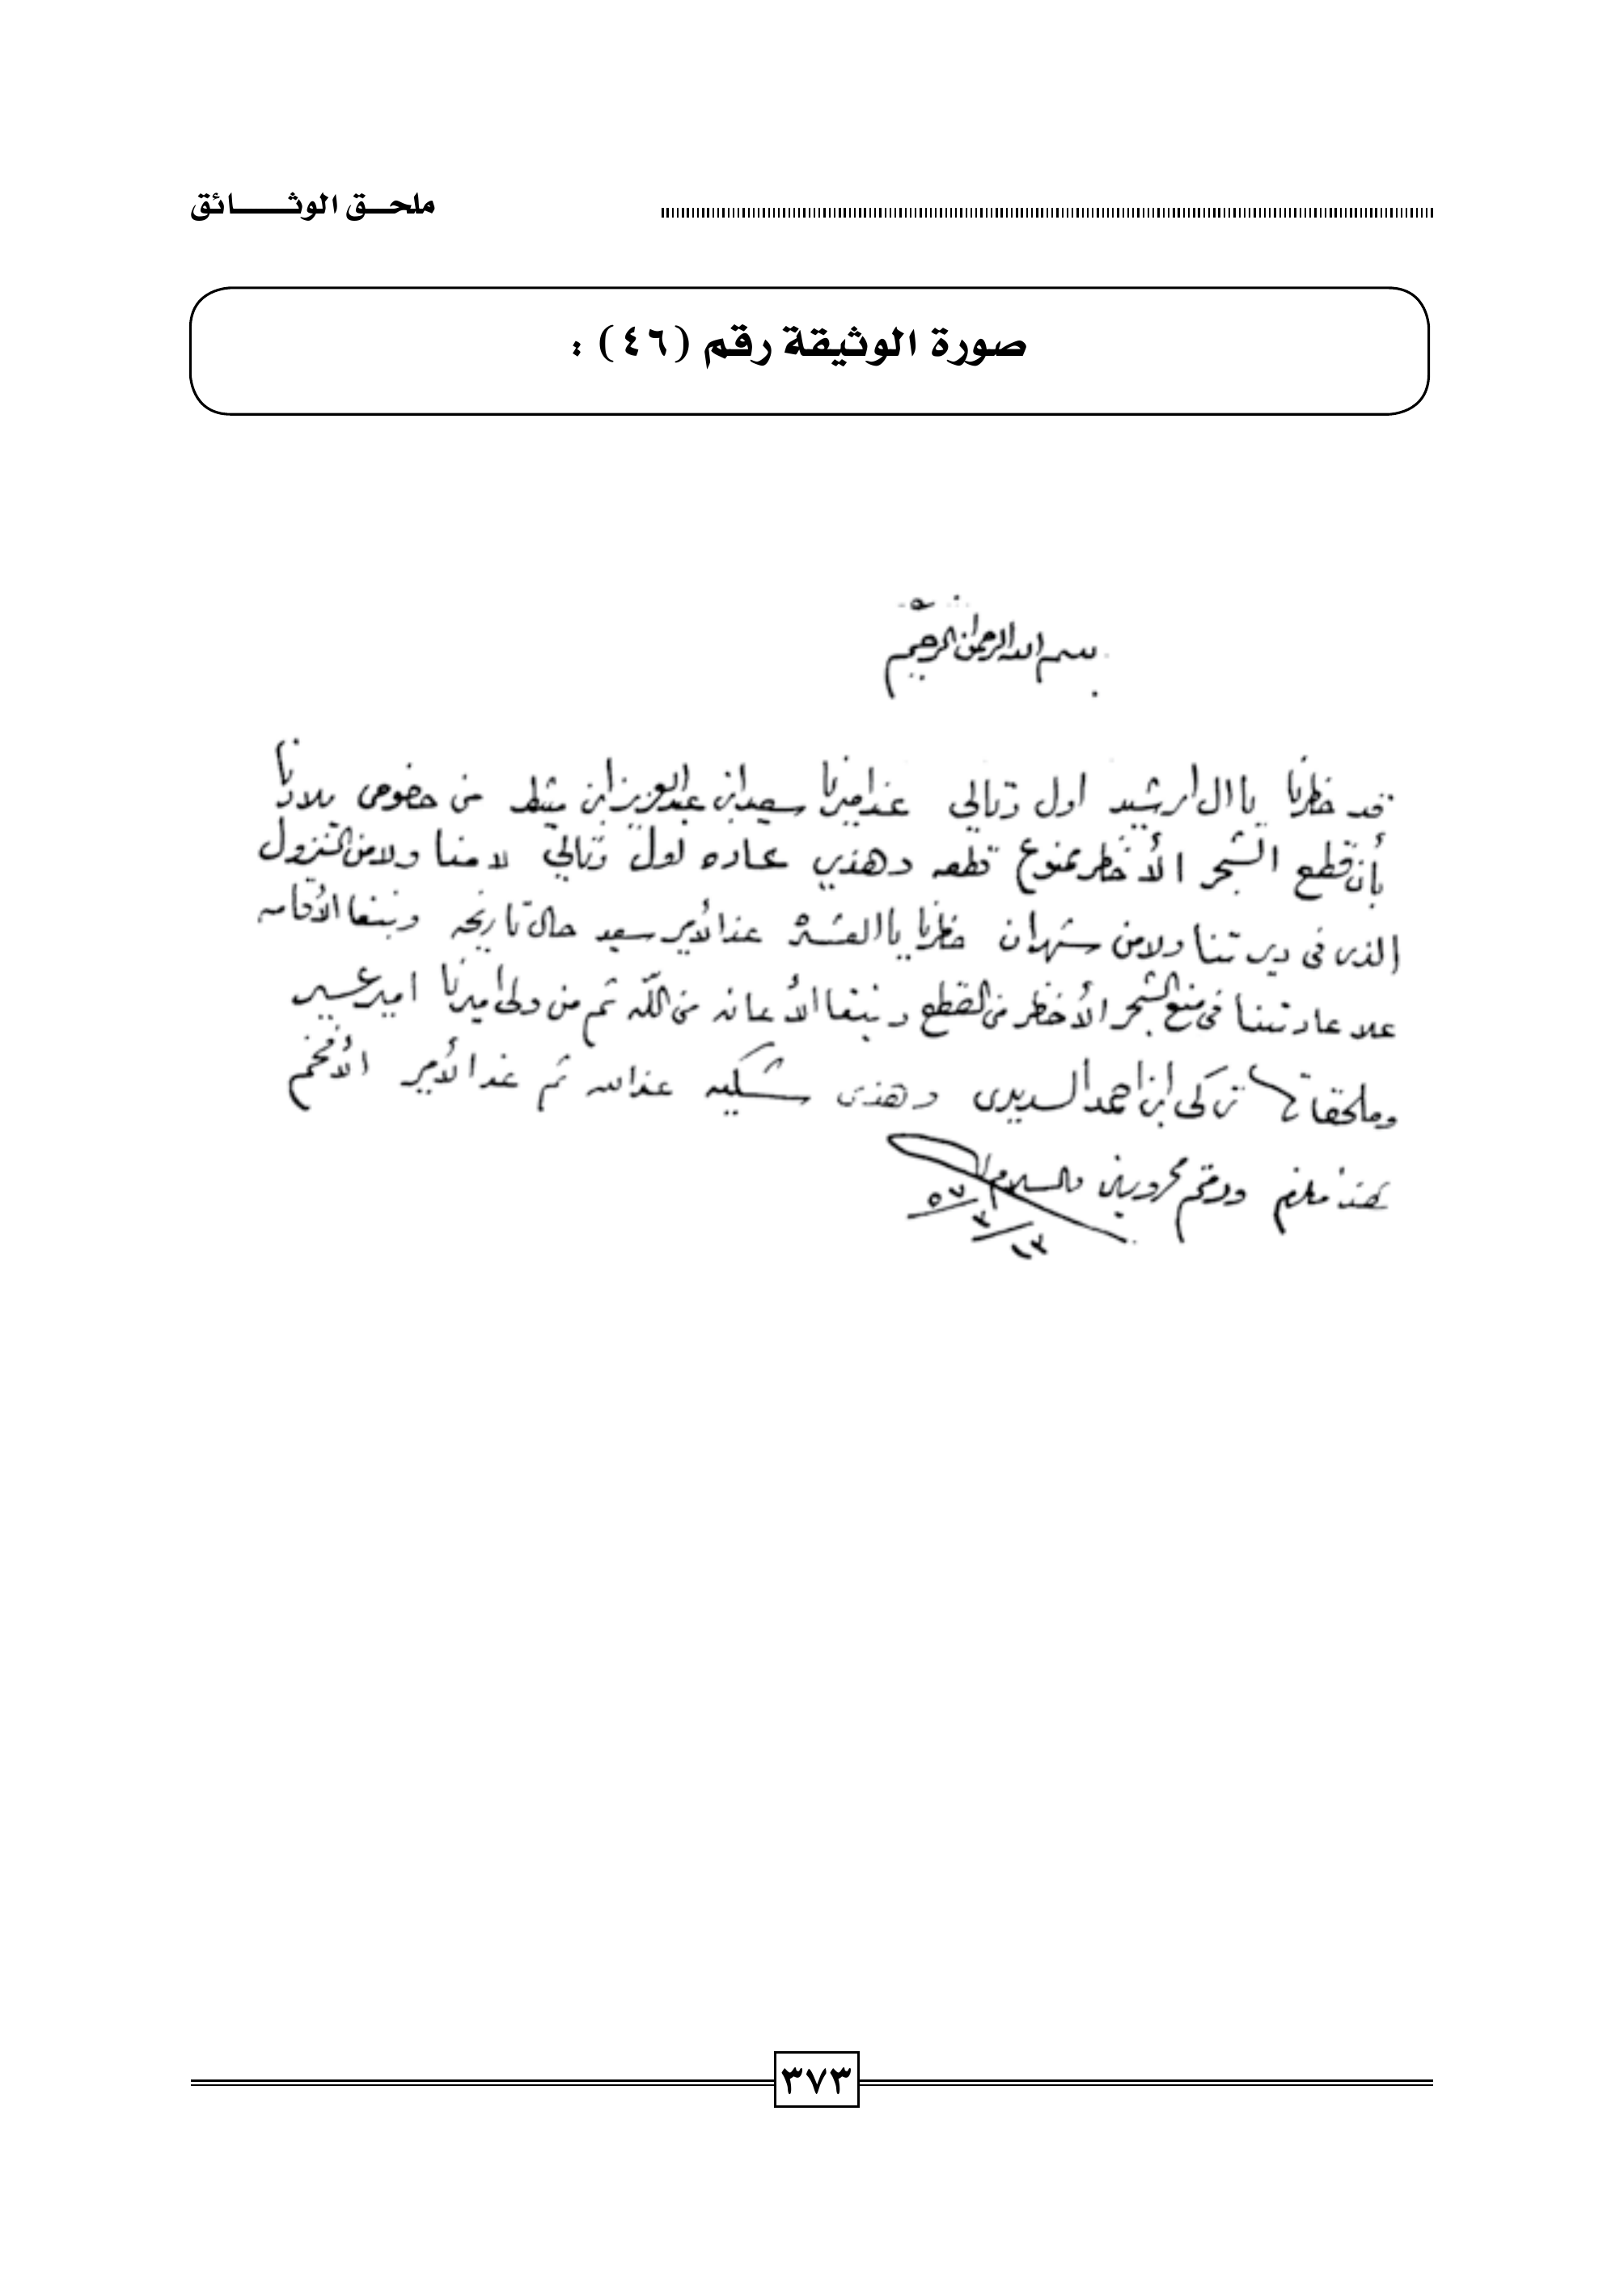 ملحق الوثائق
صورة الوثيقة رقم (٤٦) :
بسم الله الرحمن الرحيم
قد حظرنا يا ال ارشيد اول وتالي عند اميرنا سعيد ابن عبد العزيز ابن مشيط من خصوص بلادنا
بأن قطع الشجر الأخظر ممنوع قطعه وهذي عاده لول وتالي لا منا ولا من النزول
الذي في ديرتنا ولا من شهران حظرنا يا العشره عند الأمير سعيد حال تاريخه ونبغا الأقامه
علا عادتنا في منع الشجر الأخظر من القطع ونبغا الأعانه من الله ثم من ولي اميرنا امير عسير
وملحقاتها تركي ابن احمد السديري وهذي شكيه عند الله ثم عند الأمير الأفخم
والسلام
٣٧٣